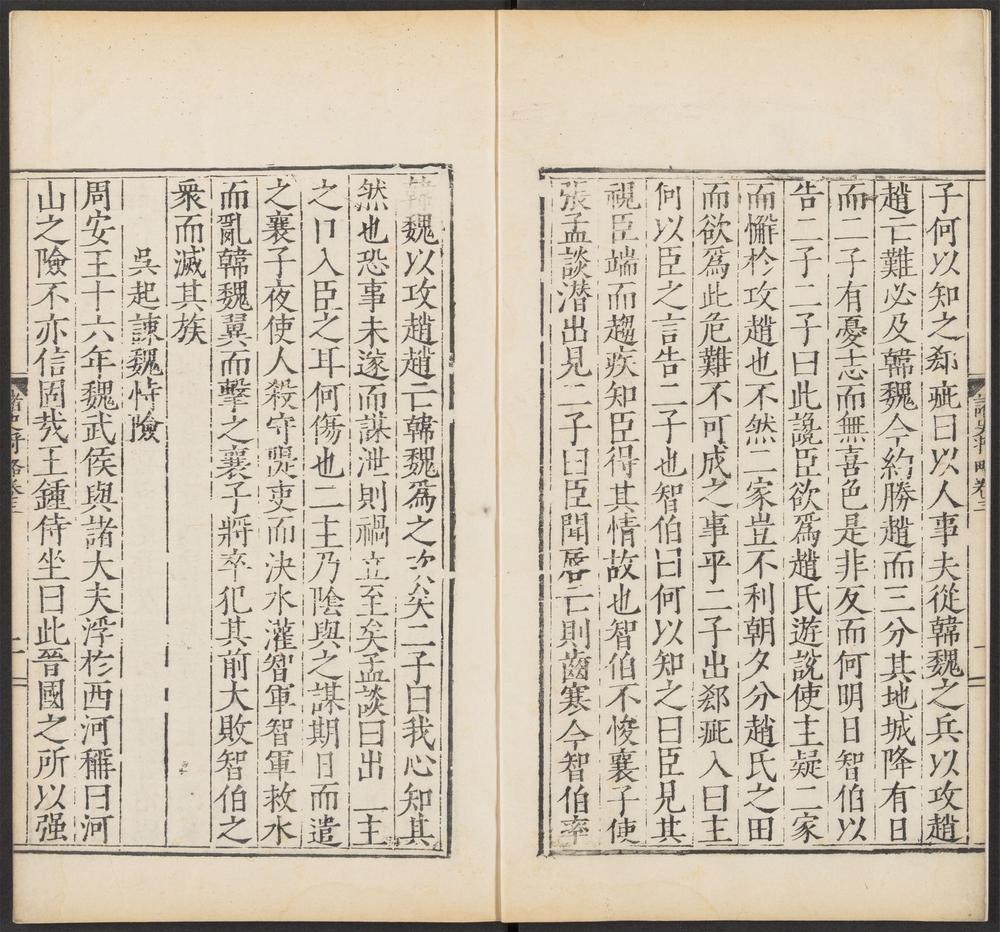 子何以知之郄疵曰以人事夫從韓魏之兵以攻趙
趙亡難必及韓魏今約勝趙而三分其地城降有日
而二子有憂志而無喜色是非反而何明日智伯以
告二子二子曰此讒臣欲爲趙氏遊說使主疑二家
而懈於攻趙也不然二家豈不利朝夕分趙氏之田
而欲爲此危難不可成之事乎二子出郄疵入曰主
何以臣之言告二子也智伯曰何以知之曰臣見其
視臣端而趨疾知臣得其情故也智伯不悛襄子使
張孟談潛出見二子曰臣聞唇亡則齒寒今智伯率
韓魏以攻趙趙亡韓魏爲之次矣二子曰我心知其
然也恐事未遂而謀泄則禍立至矣孟談曰出二主
之口入臣之耳何傷也二主乃陰與之謀期日而遣
之襄子夜使人殺守堤吏而決水灌智軍智軍救水
而亂韓魏翼而擊之襄子將卒犯其前大敗智伯之
衆而滅其族
吳起諫魏恃險
周安王十六年魏武侯與諸大夫浮於西河稱曰河
山之險不亦信固哉王鍾侍坐曰此晉國之所以强